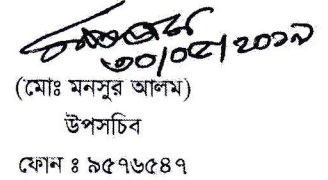 ৩০/০৫/২০১৯
(মোঃ মনসুর আলম)
উপসচিব
ফোন ঃ ৯৫৭৬৫৪৭